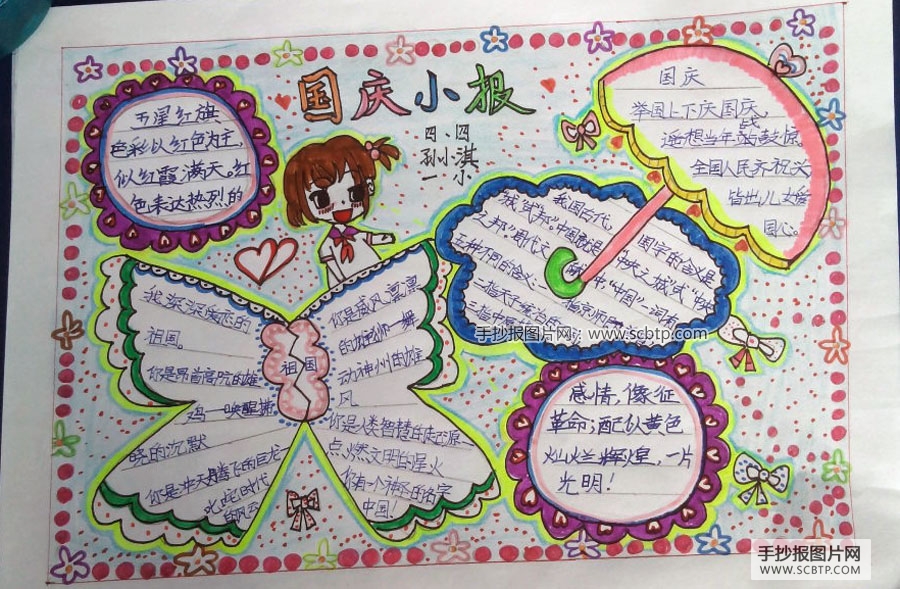 国庆小报
四、四
孙小淇
一小
五星红旗
色彩以红色为主,
似红霞满天。红
色表达热烈的
国庆
举国上下庆国庆,
遥想当年战鼓惊
全国人民齐祝兴
皆世儿女爱
国心。
我国古代,
国字的含义是
城"或"邦"。中国就是"中央之城"或"中央
之邦"。周代文
中"中国"一词有
五种不同的含义:一指京师
二指天子统治的
三指中原
手抄报图片网:www.scbtp.com
我深深爱恋的
祖国。
你是昂首高亢的雄
鸡一唤醒拂
晓的沉默
你是冲天腾飞的巨龙一
叱咤时代
的风云
祖国
你是威风凛凛
的雄狮一舞
动神州的雄
风
你是人类智慧的起源一
点燃文明的星火
你有一个神圣的名字
中国!
感情,像征
革命;配以黄色
灿烂辉煌,一片
光明!
手抄报图片网
WWW.SCBTP.COM